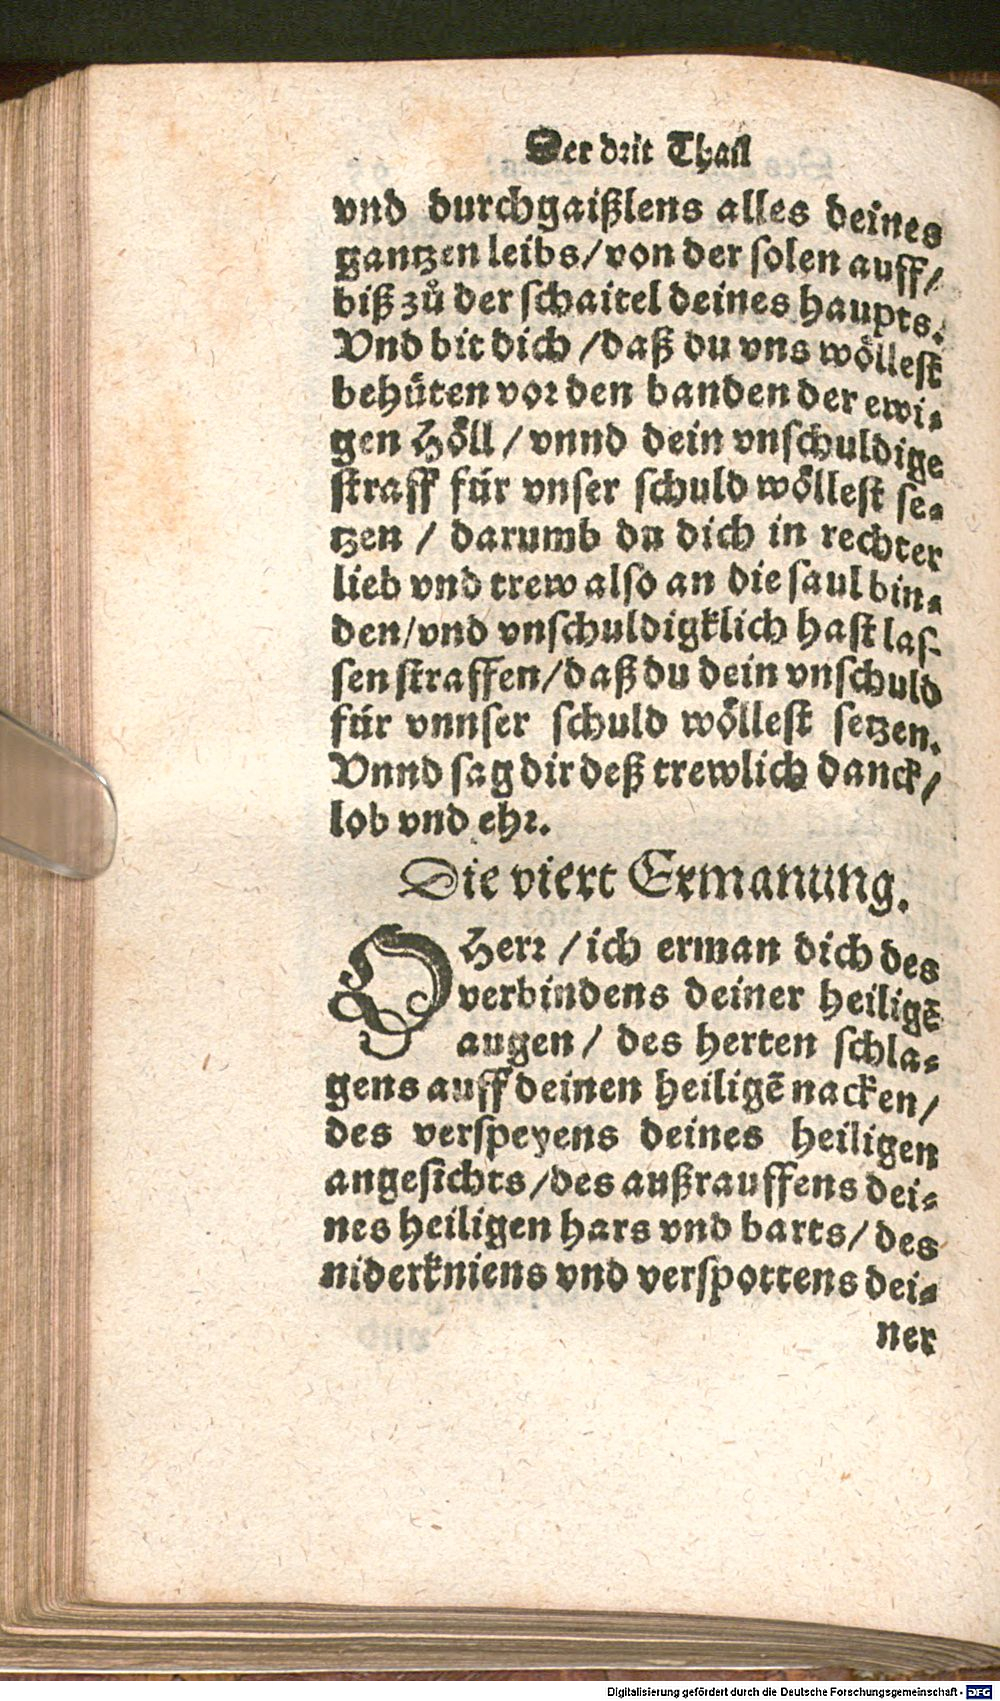 Der drit Thail
vnd durchgaißlens alles deines
gantzen leibs/von der solen auff/
biß zů der schaitel deines haupts.
Vnd bit dich /daß du vns wöllest
behüten vor den banden der ewi-
gen Höll / vnnd dein vnschuldige
straff für vnser schuld wöllest se-
tzen / darumb du dich in rechter
lieb vnd trew also an die saul bin-
den/vnd vnschuldigklich hast las-
sen straffen/daß du dein vnschuld
für vnnser schuld wöllest setzen.
Vnnd sag dir deß trewlich danck/
lob vnd ehr.
Die viert Ermanung.
O Herr /ich erman dich des
verbindens deiner heiligē
augen / des herten schla-
gens auff deinen heiligē nacken/
des verspeyens deines heiligen
angesichts/des außrauffens dei-
nes heiligen hars vnd barts/des
niderkniens vnd verspottens dei-
ner
Digitalisierung gefördert durch die Deutsche Forschungsgemeinschaft - DFG